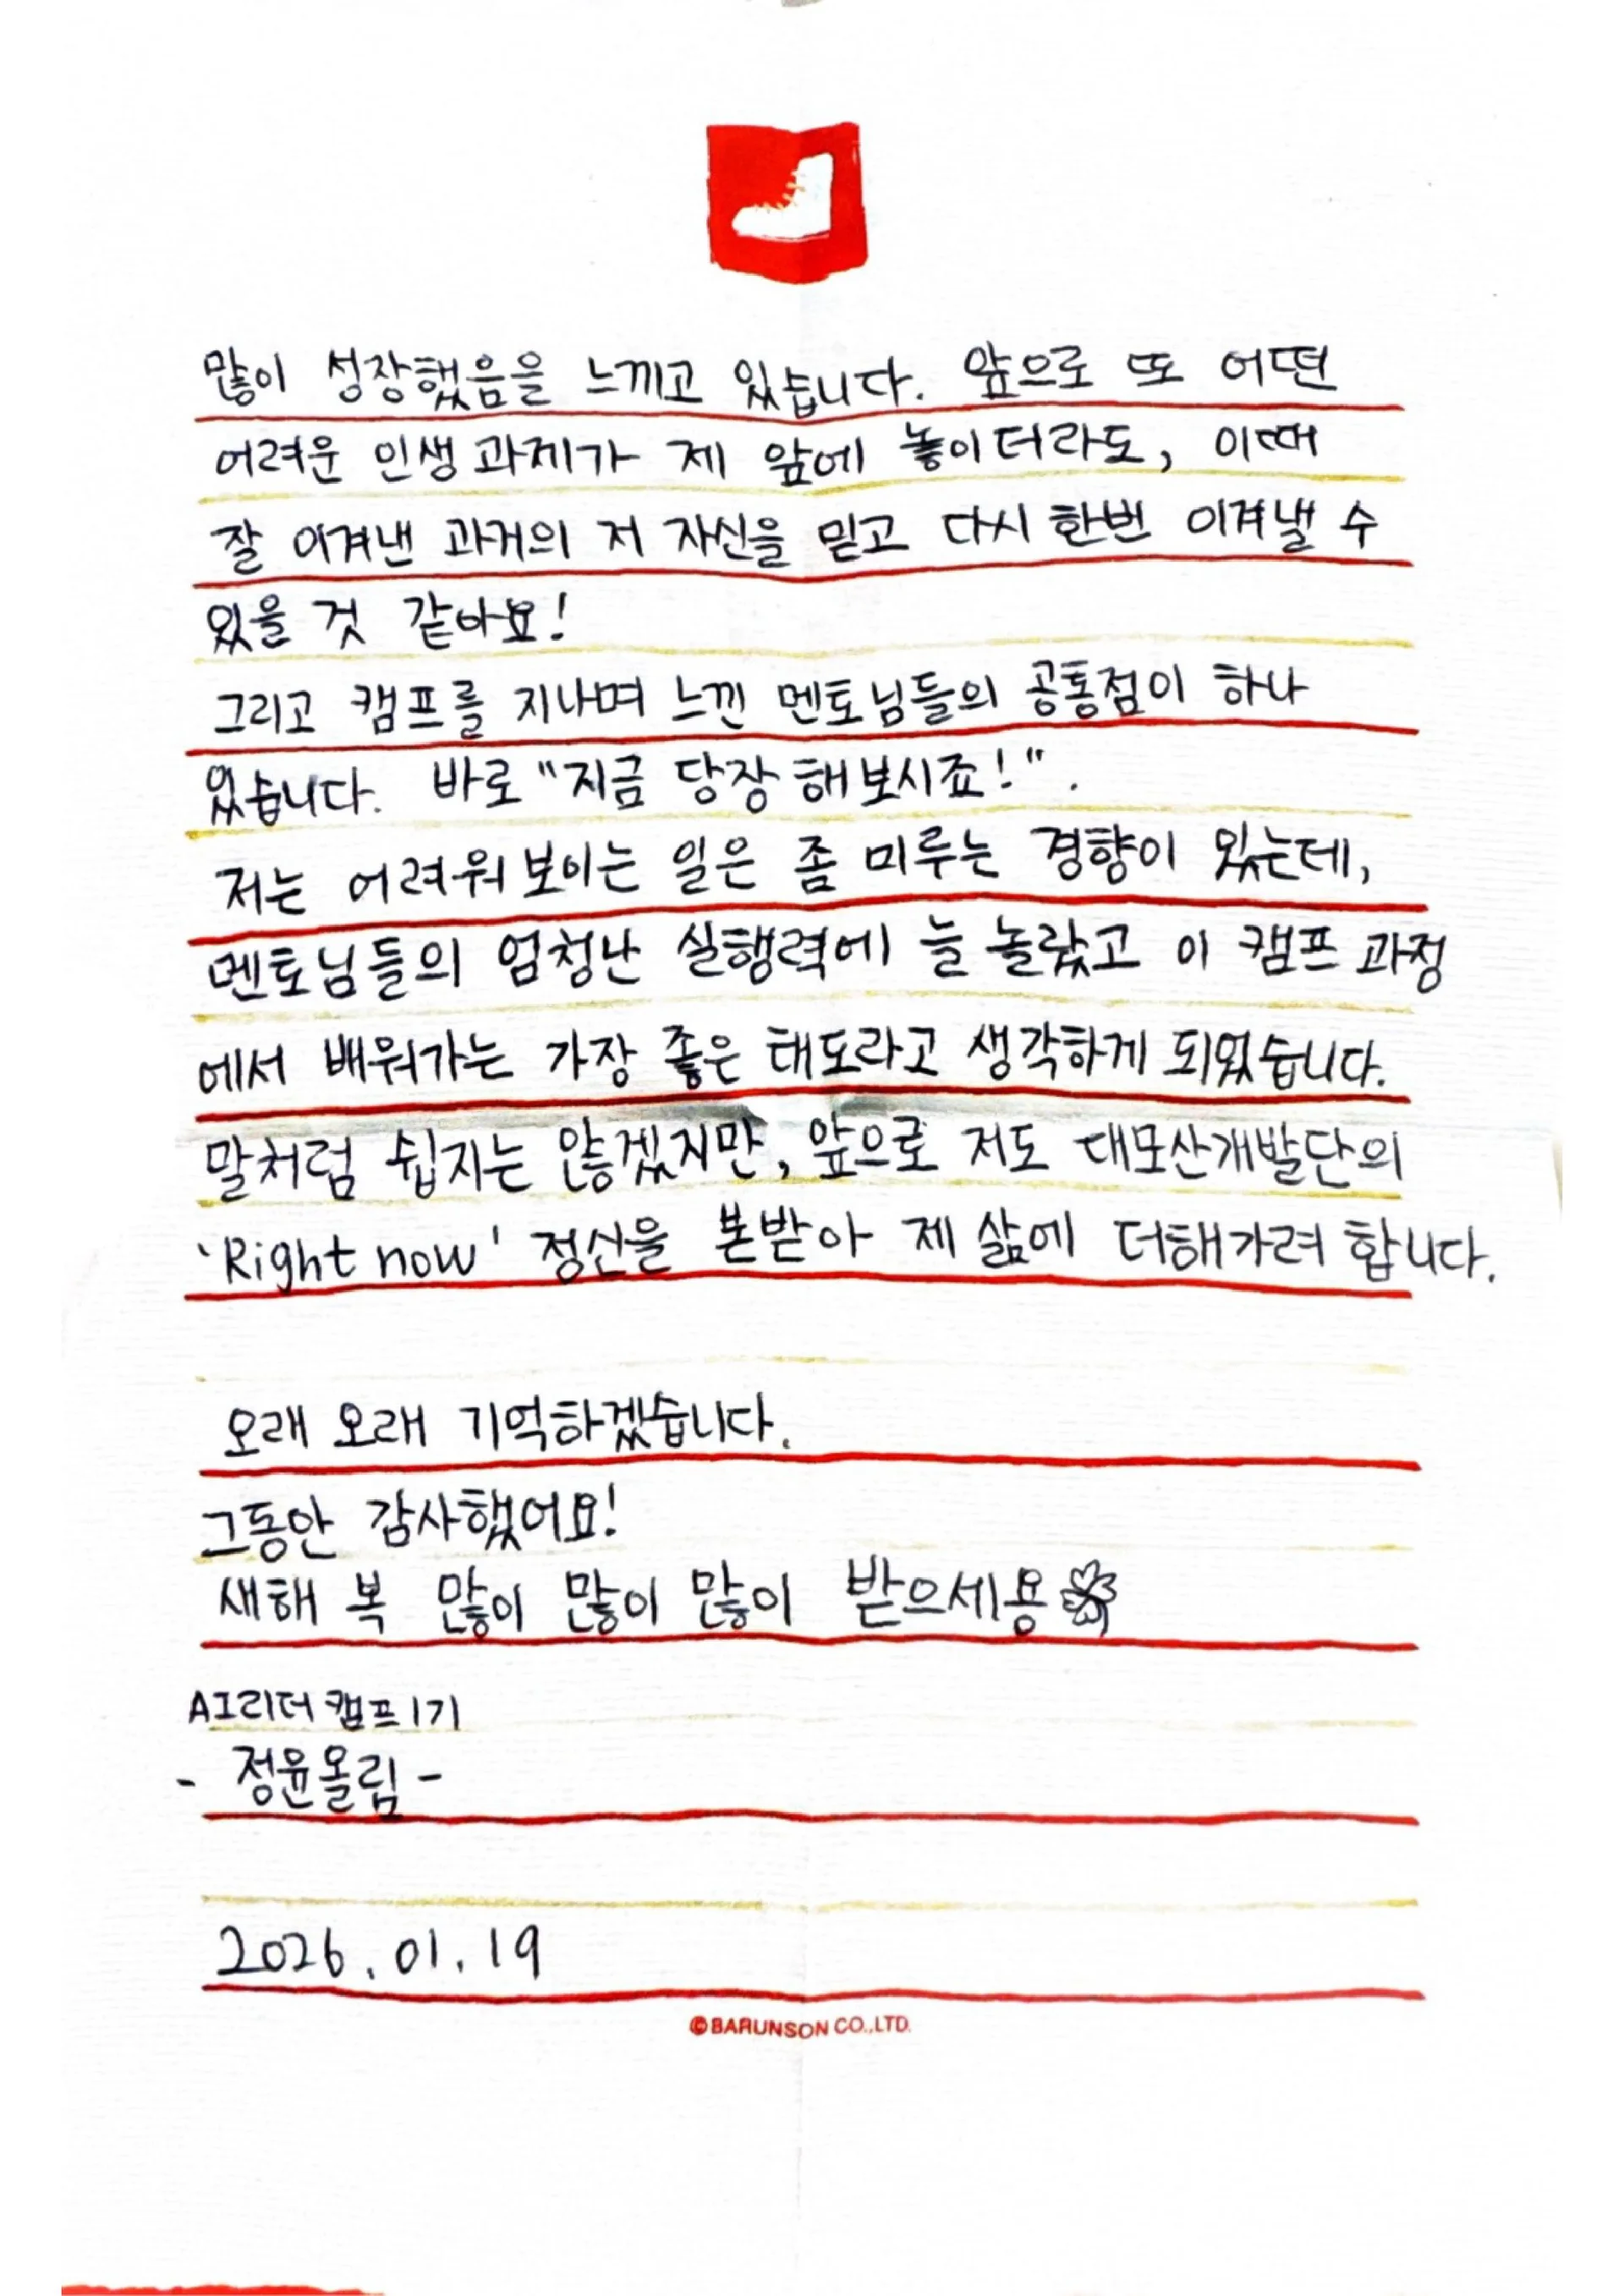 많이 성장했음을 느끼고 있습니다. 앞으로 또 어떤
어려운 인생 과제가 제 앞에 놓이더라도, 이때
잘 이겨낸 과거의 저 자신을 믿고 다시 한번 이겨낼 수
있을 것 같아요!
그리고 캠프를 지나며 느낀 멘토님들의 공통점이 하나
있습니다. 바로 "지금 당장 해보시죠!".
저는 어려워 보이는 일은 좀 미루는 경향이 있는데,
멘토님들의 엄청난 실행력에 늘 놀랐고 이 캠프 과정
에서 배워가는 가장 좋은 태도라고 생각하게 되었습니다.
말처럼 쉽지는 않겠지만, 앞으로 저도 대모산개발단의
'Right now' 정신을 본받아 제 삶에 더해가려 합니다.
오래 오래 기억하겠습니다.
그동안 감사했어요!
새해 복 많이 많이 많이 받으세용
AI리더 캠프 1기
- 정윤올림 -
2026. 01. 19
©BARUNSON CO.,LTD.